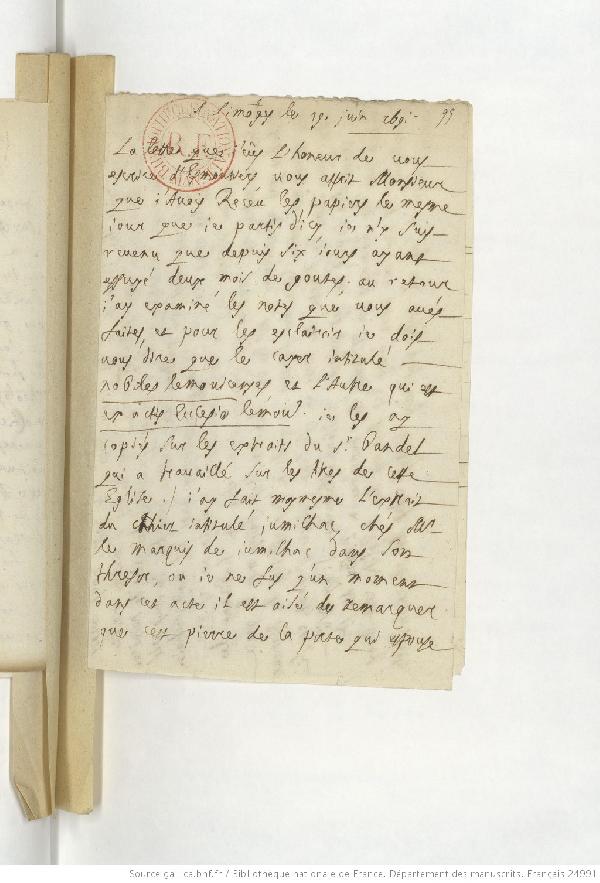 A Limoges le 19. juin 1691 95
La lettre que j'eus l'honeur de vous
escrire d'Emoutiers vous assit Monsieur
que j'avois Receu les papiers le mesme
jour que ie partis d'icy ie n'y suis
revenu que depuis six iours ayant
essuyé deux mois de goutes. au retour
j'ay examiné les notes que vous avés
faites et pour les esclaircir ie dois
vous dire que le cayer intitulé
nobdes lemovicenses et l'Autre qui est
ex actis Ecclesiæ lemovi. ie les ay
copiés sur les extraits du Sr. Bandel
qui a travaillé sur les titres de cette
Eglise. j'ay fait moymesme l'extrait
du cahier intitulé jumilhac, chés Mr.
le marquis de jumilhac dans son
thresor, ou ie ne fus q'un moment
dans cet acte il est aisé de remarquer
que cest pierre de la porte qui espouse
Source gallica.bnf.fr / Bibliothèque nationale de France. Département des manuscrits. Français 24991